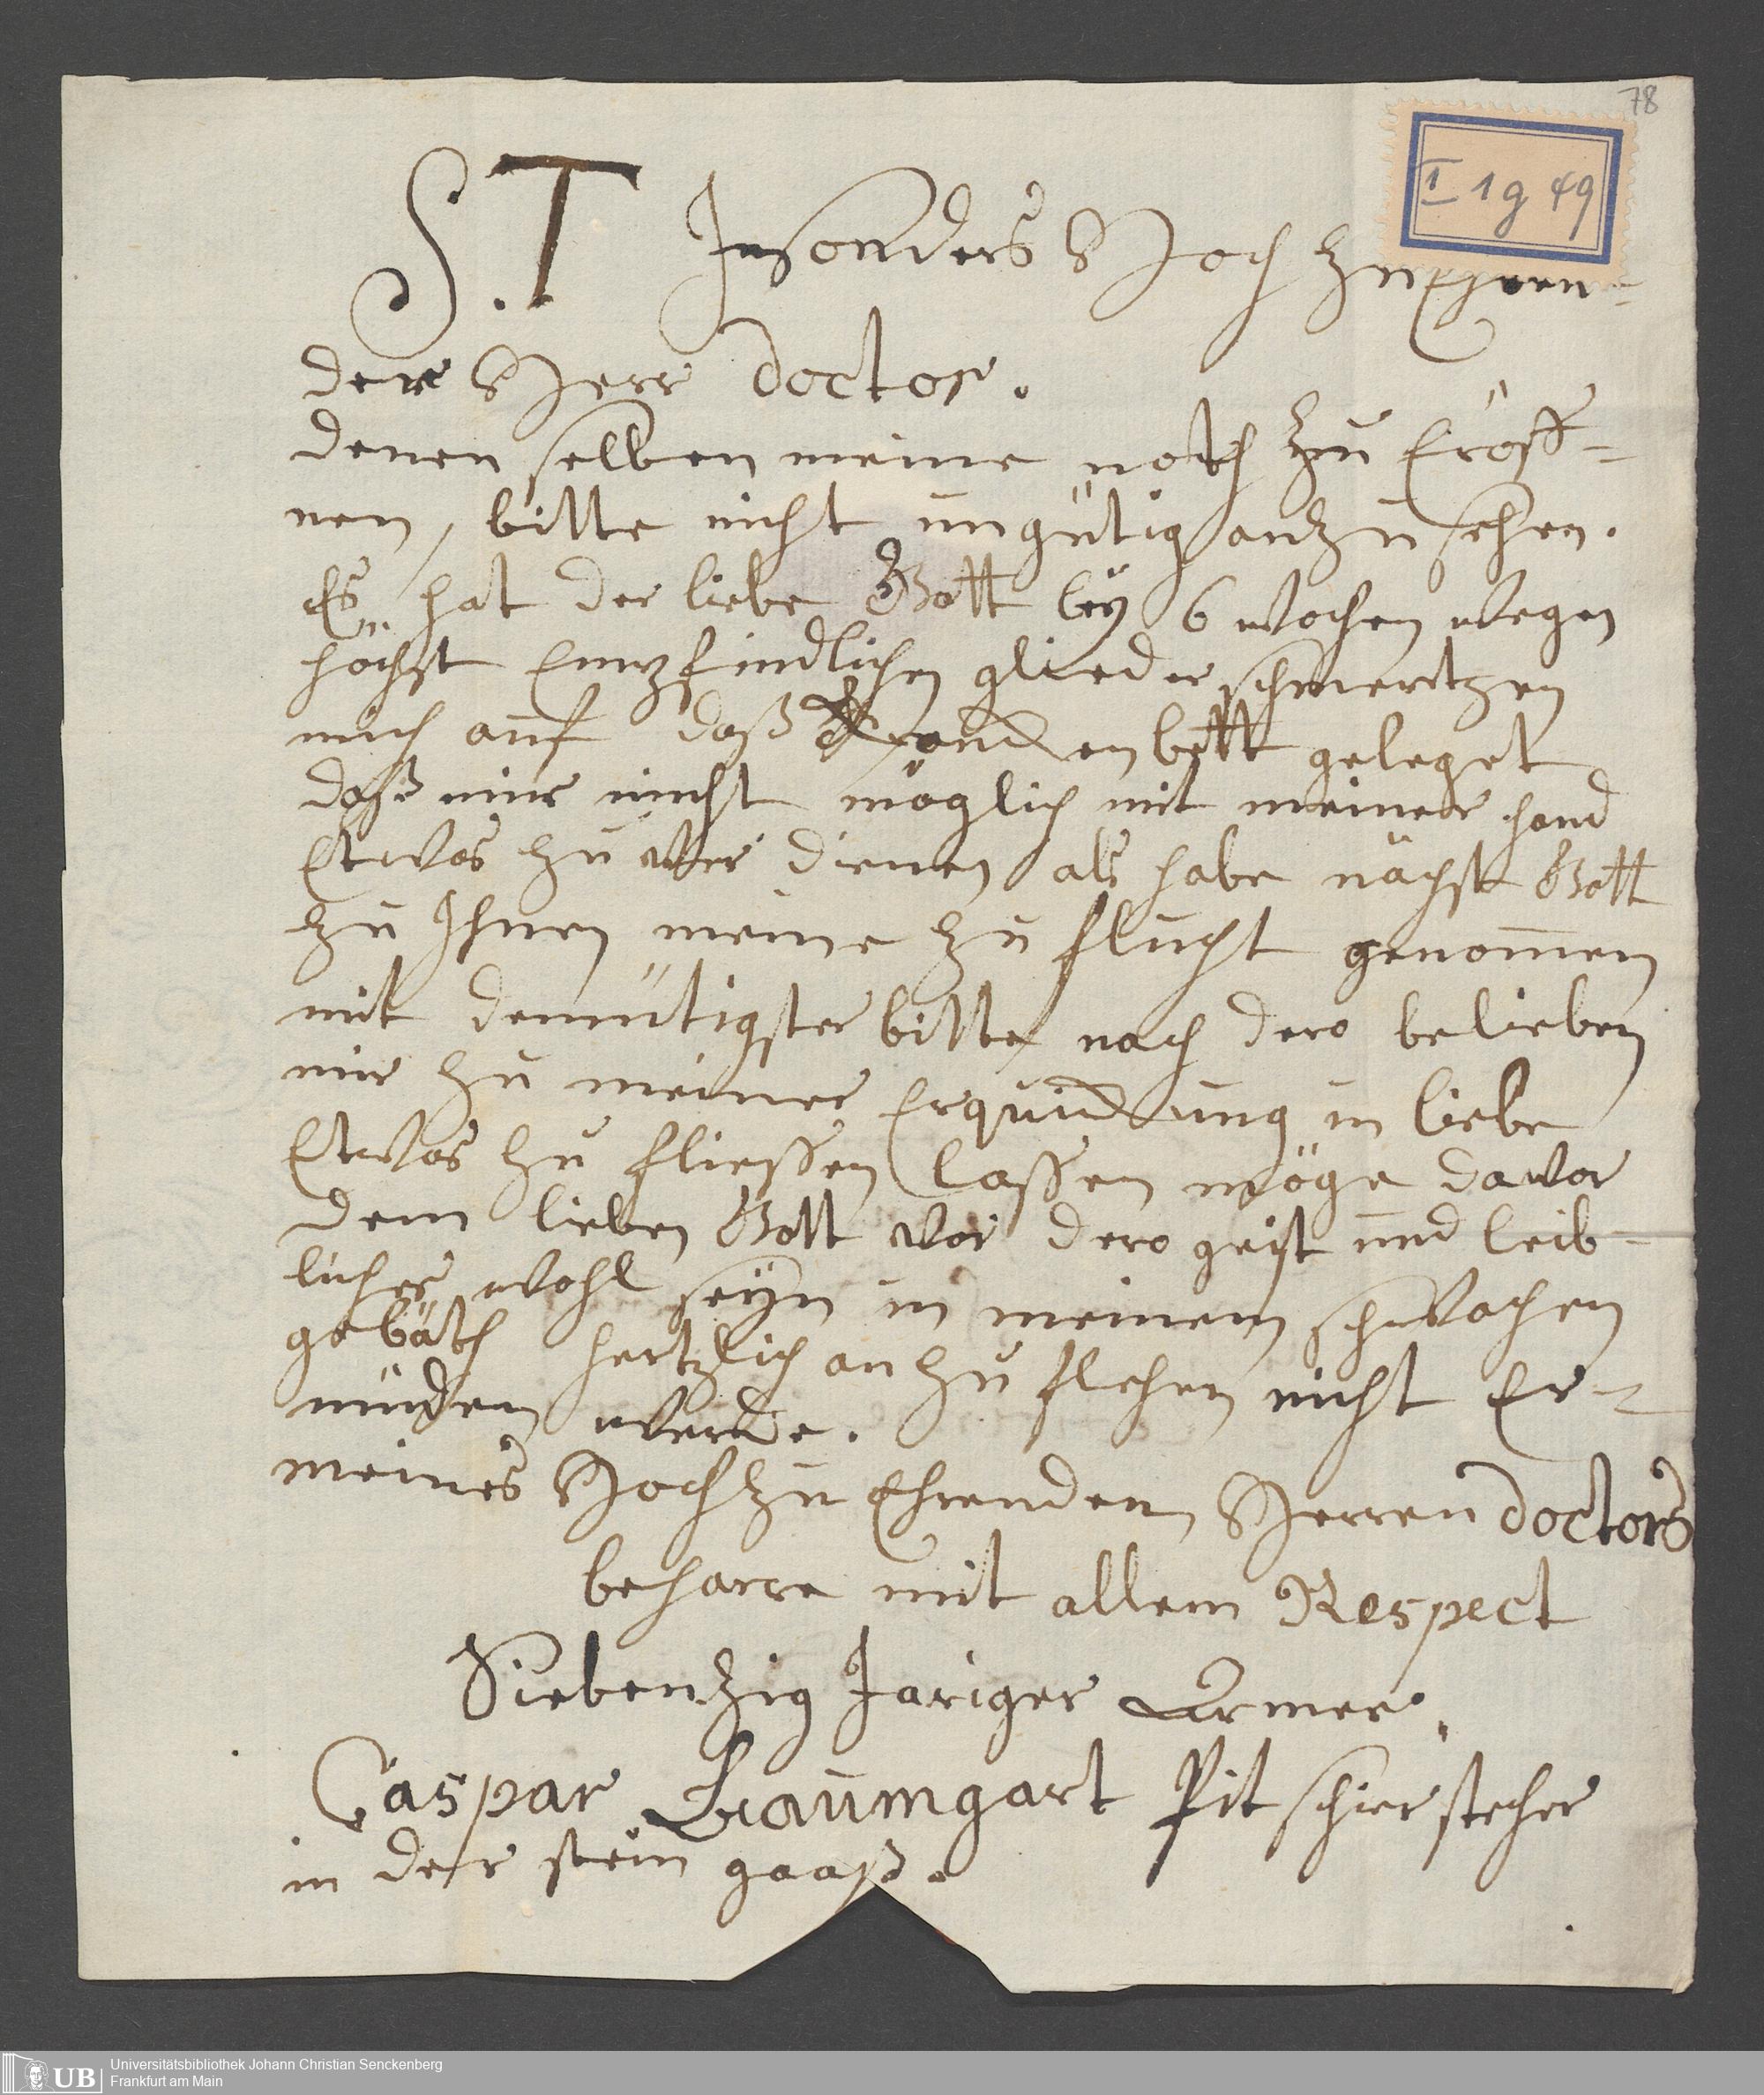 78
I 1 g 49
S. T Insonders Hoch zu Ehren-
der Herr Doctor.
denen selben meine noth zu Eröff-
nen, bitte nicht ungütig anzusehen.
Es hat der liebe Gott bey 6 wochen wegen
höchst Empfindlichen glieder schmertzen
mich auf daß Krancken bett geleget
daß mir nicht möglich mit meiner hand
Etwas zu ver dienen als habe nächst Gott
zu Ihnen meine zu flucht genom̄en
mit demütigster bitte nach dero belieben
mir zu meiner Erquickung in liebe
Etwas zu fliessen lassen möge davor
dem lieben Gott vor dero geist und leib-
liches wohl seyn in meinem schwachen
gebäth hertzlich an zu flehen nicht Er-
müden werde.
meines Hoch zu Ehrenden Herren Doctors
beharre mit allem Respect
Siebenzig Jariger Armer
Caspar Baumgart Pit schier stecher
in der stein gaaß.
UB Universitätsbibliothek Johann Christian Senckenberg
Frankfurt am Main